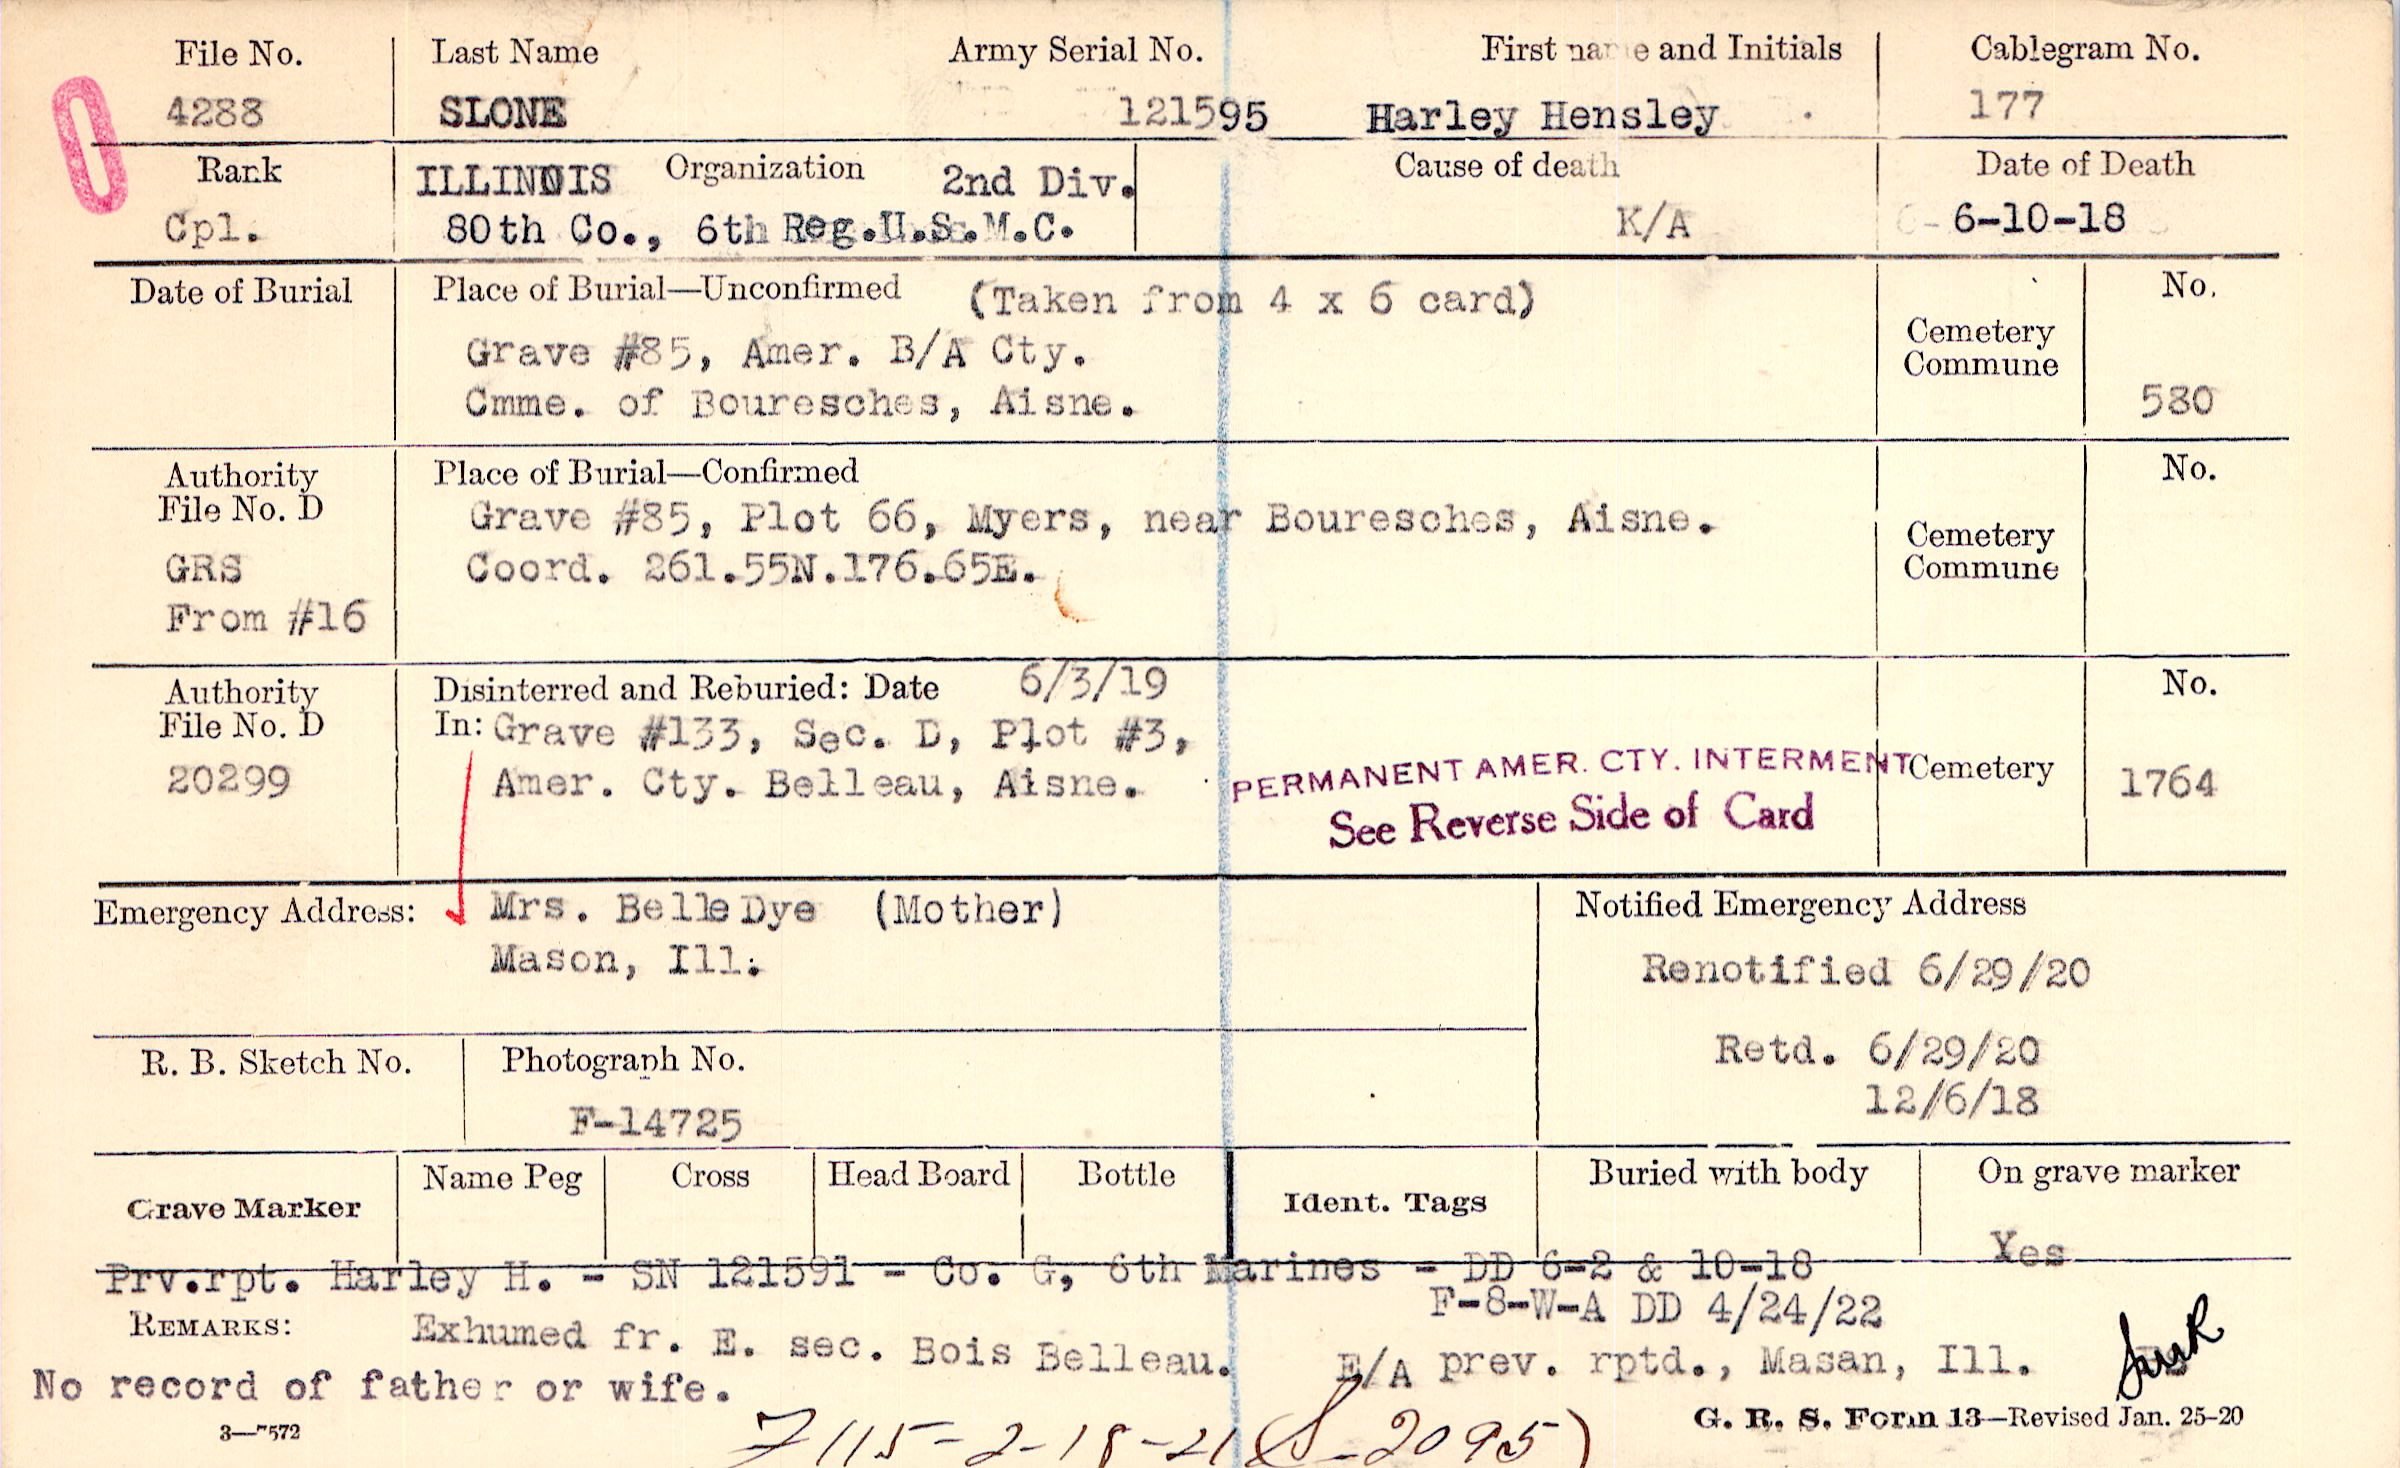 File No. Last Name Army Serial No. First name and Initials Cablegram No.
4288 SLONE 121595 Harley Hensley 177
Rank ILLINOIS Organization 2nd Div. Cause of death Date of Death
Cpl. 80th Co., 6th Reg.U.S.M.C. K/A 6-10-18
Date of Burial Place of Burial—Unconfirmed (Taken from 4 x 6 card) No.
Grave #85, Amer. B/A Cty. Cemetery
Commune
Cmme. of Bouresches, Aisne. 580
Authority Place of Burial—Confirmed No.
File No. D Grave #85, Plot 66, Myers, near Bouresches, Aisne. Cemetery
GRS Coord. 261.55N.176.65E. Commune
From #16
Authority Disinterred and Reburied: Date 6/3/19 No.
File No. D In: Grave #133, Sec. D, Plot #3,
20299 Amer. Cty. Belleau, Aisne. PERMANENT AMER. CTY. INTERMENT Cemetery 1764
See Reverse Side of Card
Emergency Address: Mrs. Belle Dye (Mother) Notified Emergency Address
Mason, Ill. Renotified 6/29/20
R. B. Sketch No. Photograph No. Retd. 6/29/20
F-14725 12/6/18
Grave Marker Name Peg Cross Head Board Bottle Ident. Tags Buried with body On grave marker
Yes
Prv.rpt. Harley H. - SN 121591 - Co. G, 6th Marines - DD 6-2 & 10-18
F-8-W-A DD 4/24/22
REMARKS: Exhumed fr. E. sec. Bois Belleau. E/A prev. rptd., Masan, Ill.
No record of father or wife.
3—7572 G. R. S. Form 13—Revised Jan. 25-20
7115-2-18-21 (S-2095)